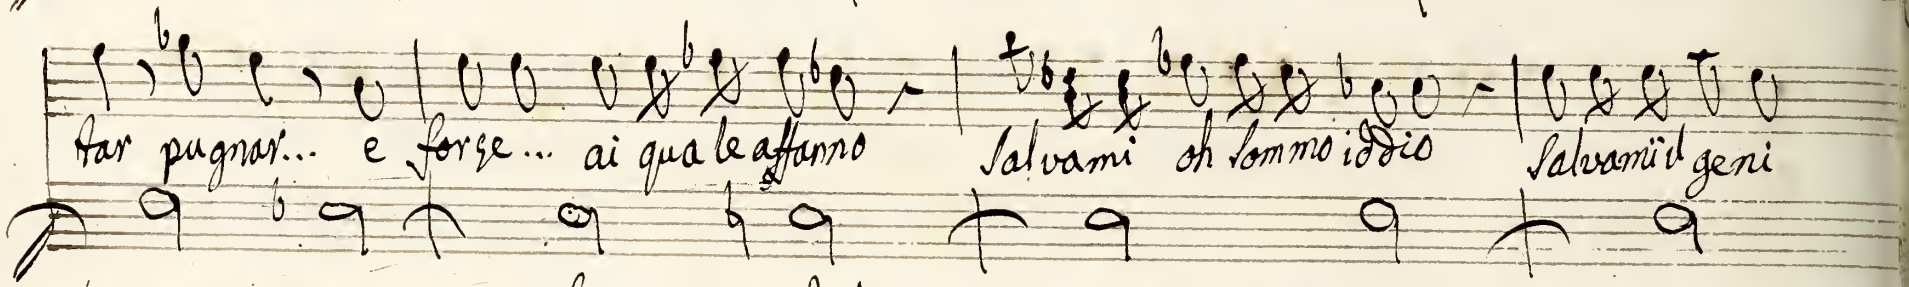 tar pugnar... e forse... ai quale affanno salvami oh sommo iddio salvami il geni